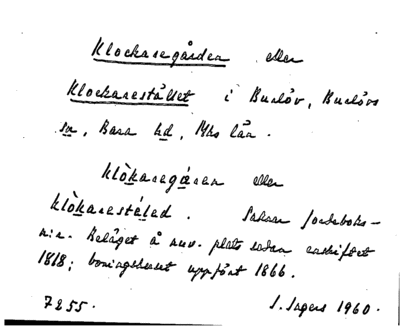 Klockaregården eller
Klockarestället i Burlöv, Burlövs
sn, Bara hd, Mhs län.
Klòkaregåren eller
Klòkareståled. Saknar jordeboks-
n:r. Beläget å nuv. plats sedan enskiftet
1818; boningshuset uppfört 1866.
7255. I. Ingers 1960.